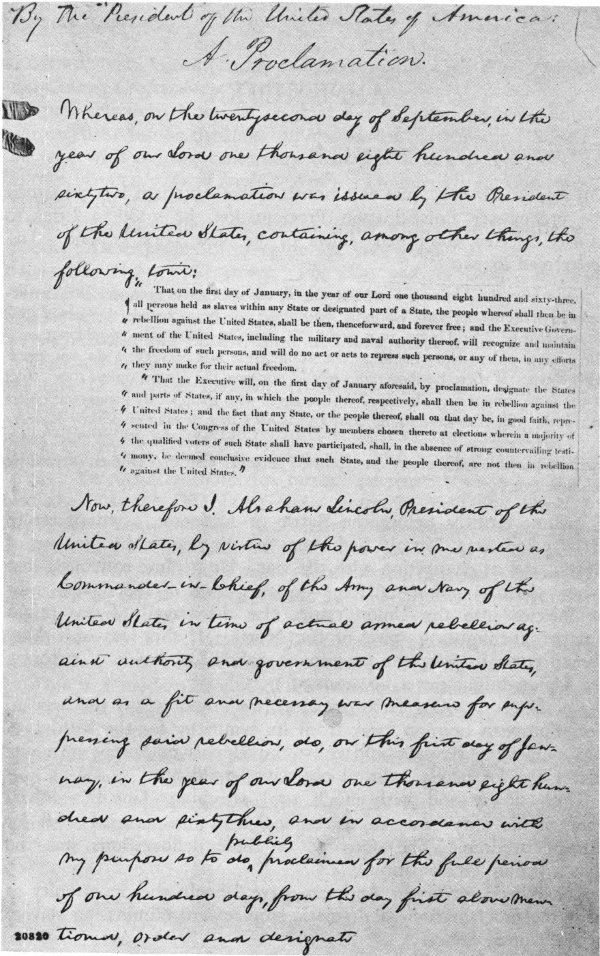 By the President of the United States of America:
A Proclamation.
Whereas, on the twentysecond day of September, in the
year of our Lord one thousand eight hundred and
sixtytwo, a proclamation was issued by the President
of the United States, containing, among other things, the
following, towit:
" That on the first day of January, in the year of our Lord one thousand eight hundred and sixty-three,
" all persons held as slaves within any State or designated part of a State, the people whereof shall then be in
" rebellion against the United States, shall be then, thenceforward, and forever free; and the Executive Govern-
" ment of the United States, including the military and naval authority thereof, will recognize and maintain
" the freedom of such persons, and will do no act or acts to repress such persons, or any of them, in any efforts
" they may make for their actual freedom.
" That the Executive will, on the first day of January aforesaid, by proclamation, designate the States
" and parts of States, if any, in which the people thereof, respectively, shall then be in rebellion against the
" United States; and the fact that any State, or the people thereof, shall on that day be, in good faith, repre-
" sented in the Congress of the United States by members chosen thereto at elections wherein a majority of
" the qualified voters of such State shall have participated, shall, in the absence of strong countervailing testi-
" mony, be deemed conclusive evidence that such State, and the people thereof, are not then in rebellion
" against the United States."
Now, therefore I, Abraham Lincoln, President of the
United States, by virtue of the power in me vested as
Commander-in-Chief, of the Army and Navy of the
United States in time of actual armed rebellion ag-
ainst authority and government of the United States,
and as a fit and necessary war measure for sup-
pressing said rebellion, do, on this first day of Jan-
uary, in the year of our Lord one thousand eight hun-
dred and sixtythree, and in accordance with
my purpose so to do, publicly proclaimed for the full period
of one hundred days, from the day first above men-
tioned, order and designate
20820